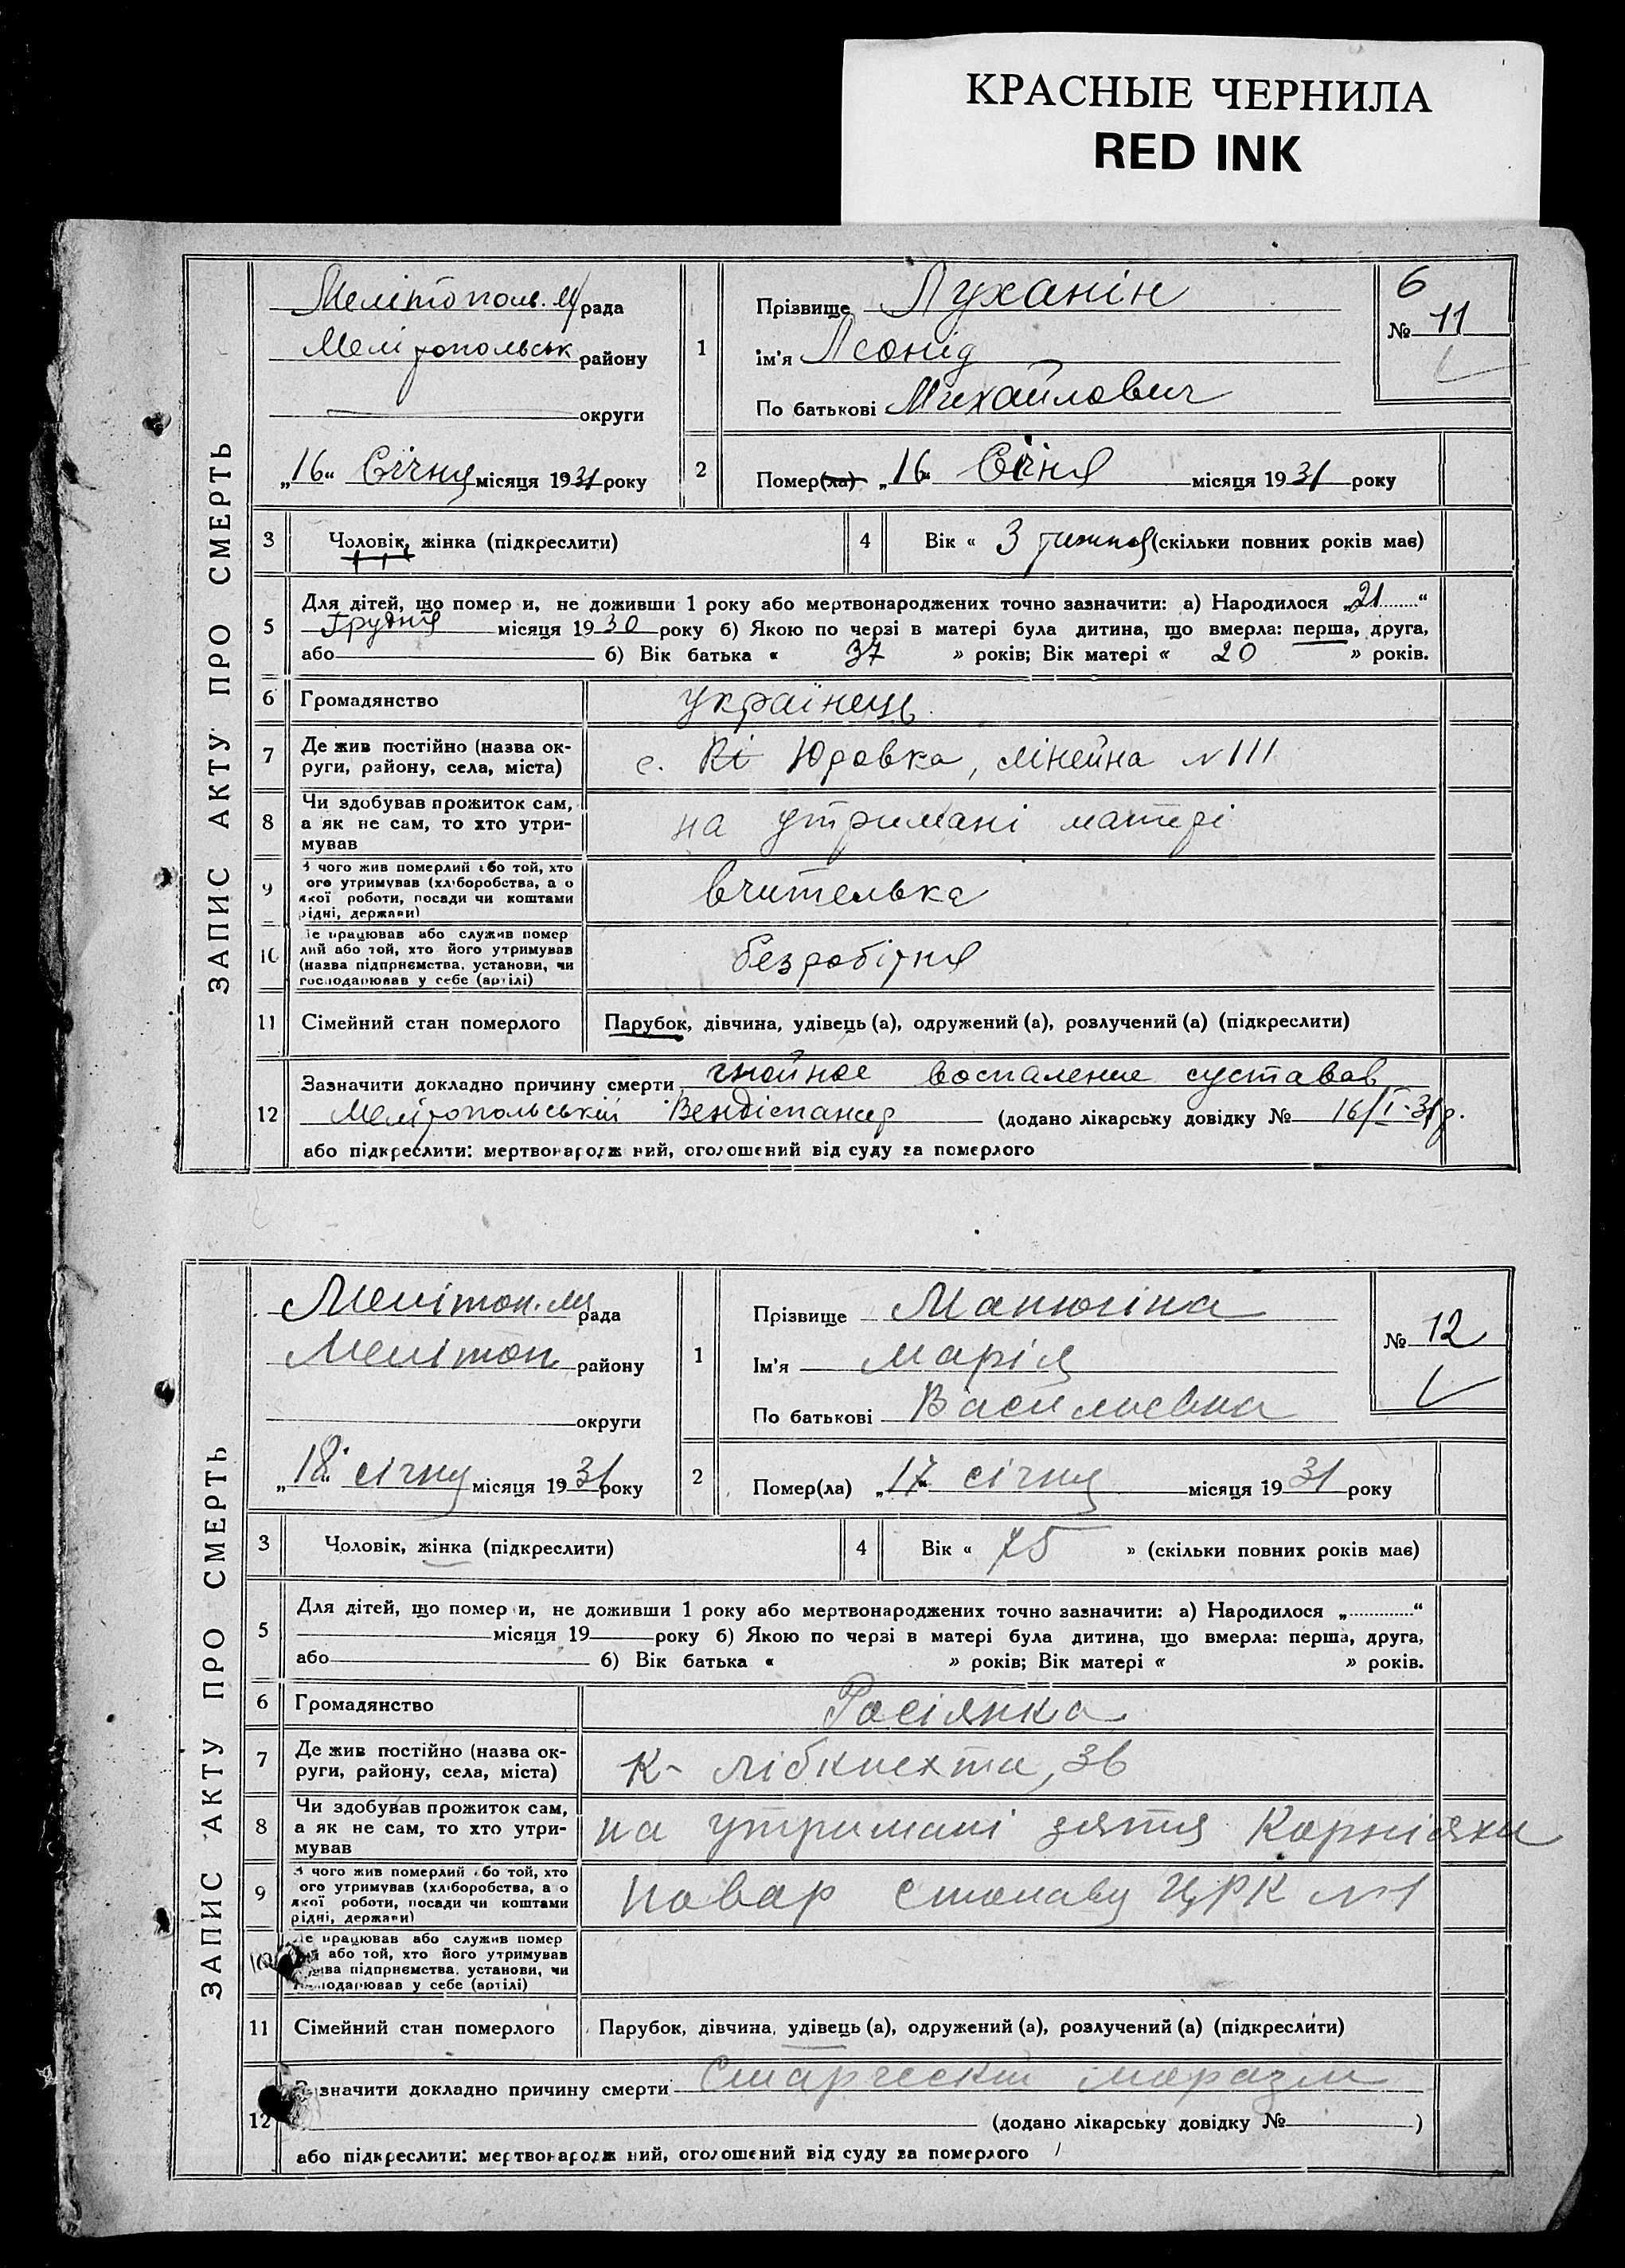 КРАСНЫЕ ЧЕРНИЛА
RED INK
ЗАПИС АКТУ ПРО СМЕРТЬ
Мелітополь. м/рада
Мелітопольськ району
округи
„16“ Січня місяця 1931 року
1
Прізвище Луханін
ім'я Леонід
По батькові Михайлович
6
№ 11
2
Помер(ла) „16“ Січня місяця 1931 року
3 Чоловік, жінка (підкреслити)
4 Вік « 3 тижня (скільки повних років має)
5
Для дітей, що помер и, не доживши 1 року або мертвонароджених точно зазначити: а) Народилося „21“
Грудня місяця 1930 року б) Якою по черзі в матері була дитина, що вмерла: перша, друга,
або б) Вік батька « 37 » років; Вік матері « 20 » років.
6 Громадянство українець
7 Де жив постійно (назва ок-
руги, району, села, міста)
с. Кі Юровка, лінейна № 111
8 Чи здобував прожиток сам,
а як не сам, то хто утри-
мував
на утримані матері
9 З чого жив померлий або той, хто
ого утримував (хліборобства, а о
якої роботи, посади чи коштами
рідні, держави)
вчителька
10 Де працював або служив помер
лий або той, хто його утримував
(назва підприємства, установи, чи
господарював у себе (артілі)
безробітня
11 Сімейний стан померлого Парубок, дівчина, удівець (а), одружений (а), розлучений (а) (підкреслити)
12
Зазначити докладно причину смерти гнойное воспаление суставов
Мелітопольській Вендіспансер (додано лікарську довідку № 16/I-31р.
або підкреслити: мертвонародж ний, оголошений від суду за померлого
ЗАПИС АКТУ ПРО СМЕРТЬ
Мелітоп. м/рада
Мелітоп району
округи
„18“ січня місяця 1931 року
1
Прізвище Манюгіна
Ім'я Марія
По батькові Васильевна
№ 12
2
Помер(ла) „17“ січня місяця 1931 року
3 Чоловік, жінка (підкреслити)
4 Вік « 75 » (скільки повних років має)
5
Для дітей, що помер и, не доживши 1 року або мертвонароджених точно зазначити: а) Народилося „ “
місяця 19 року б) Якою по черзі в матері була дитина, що вмерла: перша, друга,
або б) Вік батька « » років; Вік матері « » років.
6 Громадянство Росіянка
7 Де жив постійно (назва ок-
руги, району, села, міста)
К- лібкнехта, 36
8 Чи здобував прожиток сам,
а як не сам, то хто утри-
мував
на утримані зятя Корніяхи
9 З чого жив померлий або той, хто
ого утримував (хліборобства, а о
якої роботи, посади чи коштами
рідні, держави)
повар столаву ЦРК №1
10 Де працював або служив помер
або той, хто його утримував
ва підприємства, установи, чи
подарював у себе (артілі)
11 Сімейний стан померлого Парубок, дівчина, удівець (а), одружений (а), розлучений (а) (підкреслити)
12
значити докладно причину смерти Старческий маразм
(додано лікарську довідку № )
або підкреслити: мертвонародж ний, оголошений від суду за померлого